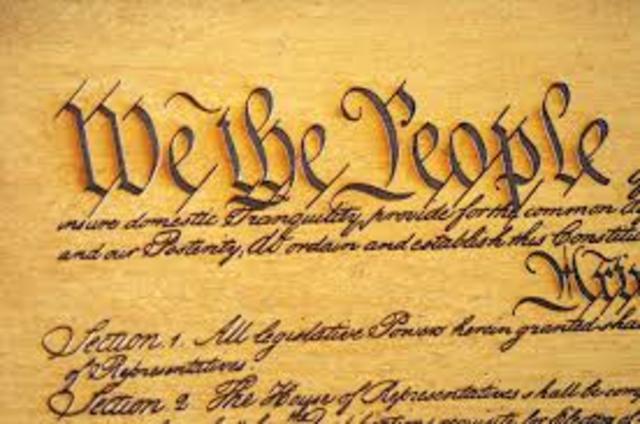 We the People
insure domestic Tranquility, provide for the common
and our Posterity, do ordain and establish this
Section 1. All legislative Powers herein granted
of Representatives
Section 2 The House of Representatives shall be